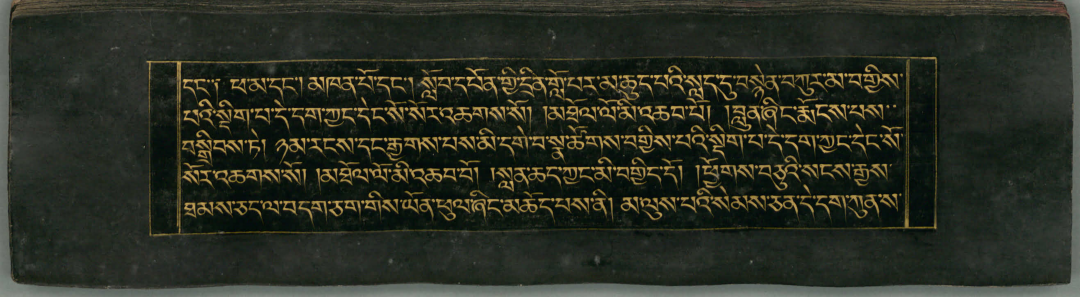 དང་་། ཕ་མ་དང་། མཁན་པོ་དང་། སློབ་དཔོན་གྱི་དྲིན་གློ་བར་མ་ཆུད་པའི་སླད་དུ་བསྙེན་བཀུར་མ་བགྱིས་
པའི་སྡིག་པ་དེ་དག་ཀྱང་དེང་སོ་སོར་འཆགས་སོ། །མ་ཐོལ་ལོ་མི་འཆབ་བོ། །བླུན་ཞིང་རྨོངས་པས་་
བསྒྲིབས་ཏེ། ཉམ་རངས་དང་རྒྱགས་པས་མི་དགེ་བ་སྣ་ཚོགས་བགྱིས་པའི་སྡིག་པ་དེ་དག་ཀྱང་དེང་སོ་
སོར་འཆགས་སོ། །མ་ཐོལ་ལོ་མི་འཆབ་བོ། །སླན་ཆད་ཀྱང་མི་བགྱིད་དོ། །ཕྱོགས་བཅུའི་སངས་རྒྱས་
ཐམས་ཅད་ལ་བདག་ཅག་གིས་ཡོན་ཕུལ་ཞིང་མཆོད་པས་ནི། མ་ལུས་པའི་སེམས་ཅན་དེ་དག་ཀུན་ས་